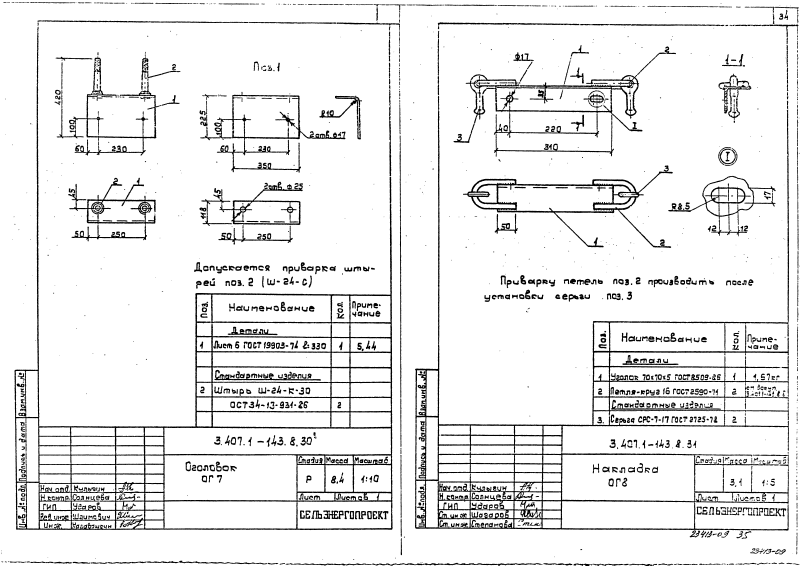 34
2
Поз.1
420
1
100
60
230
225
100
60
230
350
2отв.ф17
R10
45
2
1
50
250
118
45
2отв. ф25
50
250
Допускается приварка шты-
рей поз. 2 (Ш-24-С)
Поз.
Наименование
Кол.
Приме-
чание
Детали
1 Лист 6 ГОСТ 19903-74 ℓ=330 1 5,44
Стандартные изделия
2 Штырь Ш-24-К-30
ОСТ34-13-931-86 2
3.407.1-143.8.30
Оголовок
ОГ7
Стадия Масса Масштаб
Р 8,4 1:10
Лист Листов 1
СЕЛЬЭНЕРГОПРОЕКТ
Нач.отд. Кулыгин
Н.контр. Солнцева
ГИП Ударов
Инж.
Инв.№подл. Подпись и дата Взам.инв.№
ф17
1
2
1-1
38
1
I
3
40
220
1
310
I
3
50
1
2
R8.5
17
12
12
Приварку петель поз. 2 производить после
установки серьги поз. 3
Поз.
Наименование
Кол.
Приме-
чание
Детали
1 Уголок 70х70х5 ГОСТ8509-86 1 1,67кг
2 Петля-круг 16 ГОСТ2590-71 2
Стандартные изделия
3. Серьга СРС-7-17 ГОСТ2725-78 2
3.407.1-143.8.31
Накладка
ОГ8
Стадия Масса Масштаб
3,1 1:5
Лист Листов 1
СЕЛЬЭНЕРГОПРОЕКТ
Нач.отд. Кулыгин
Н.контр. Солнцева
ГИП Ударов
Ст.инж. Шагаров
Ст.инж. Степанова
Инв.№подл. Подпись и дата Взам.инв.№
29413-09 35
29413-09